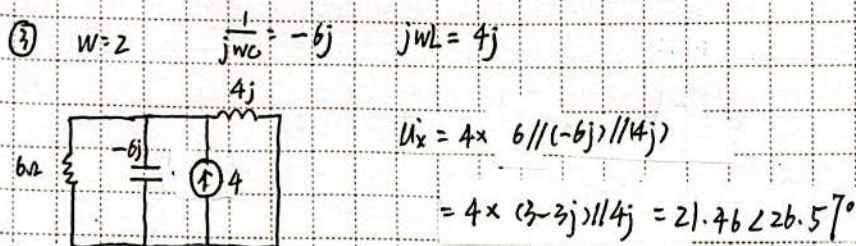 ③ W=2 1/jwc = -6j jwL = 4j
4j
6Ω -6j 4
U̇x = 4× 6//(-6j)//(4j)
= 4× (3-3j)//4j = 21.46∠26.57°